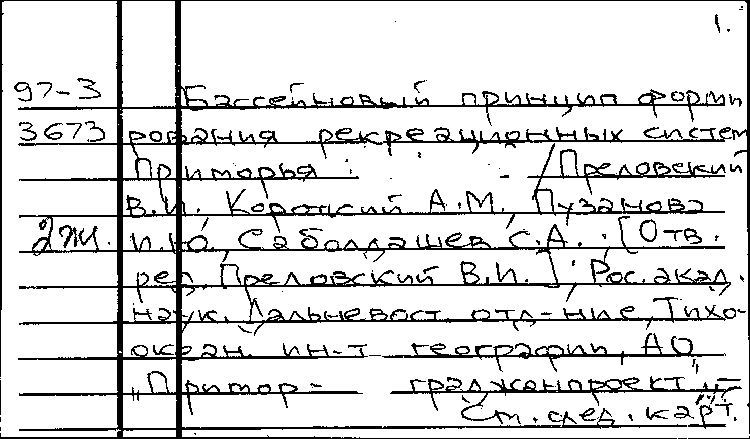 1.
97-3 Бассейновый принцип форми
3673 рования рекреационных систем
Приморья : - / Преловский
В.И., Короткий А.М., Пузанова
2 экз. И.Ю., Саболдашев С.А.; [Отв.
ред. Преловский В.И.]; Рос. акад.
наук, Дальневост. отд-ние, Тихо-
океан. ин-т географии, АО
"Примор- гражданпроект". -
См. след. карт.